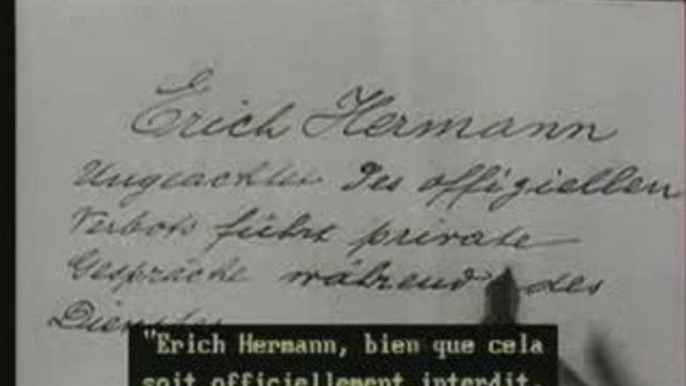 Erich Hermann
Ungeachtet des offiziellen
Verbots führt private
Gespräche während des
Dienstes
"Erich Hermann, bien que cela
soit officiellement interdit,